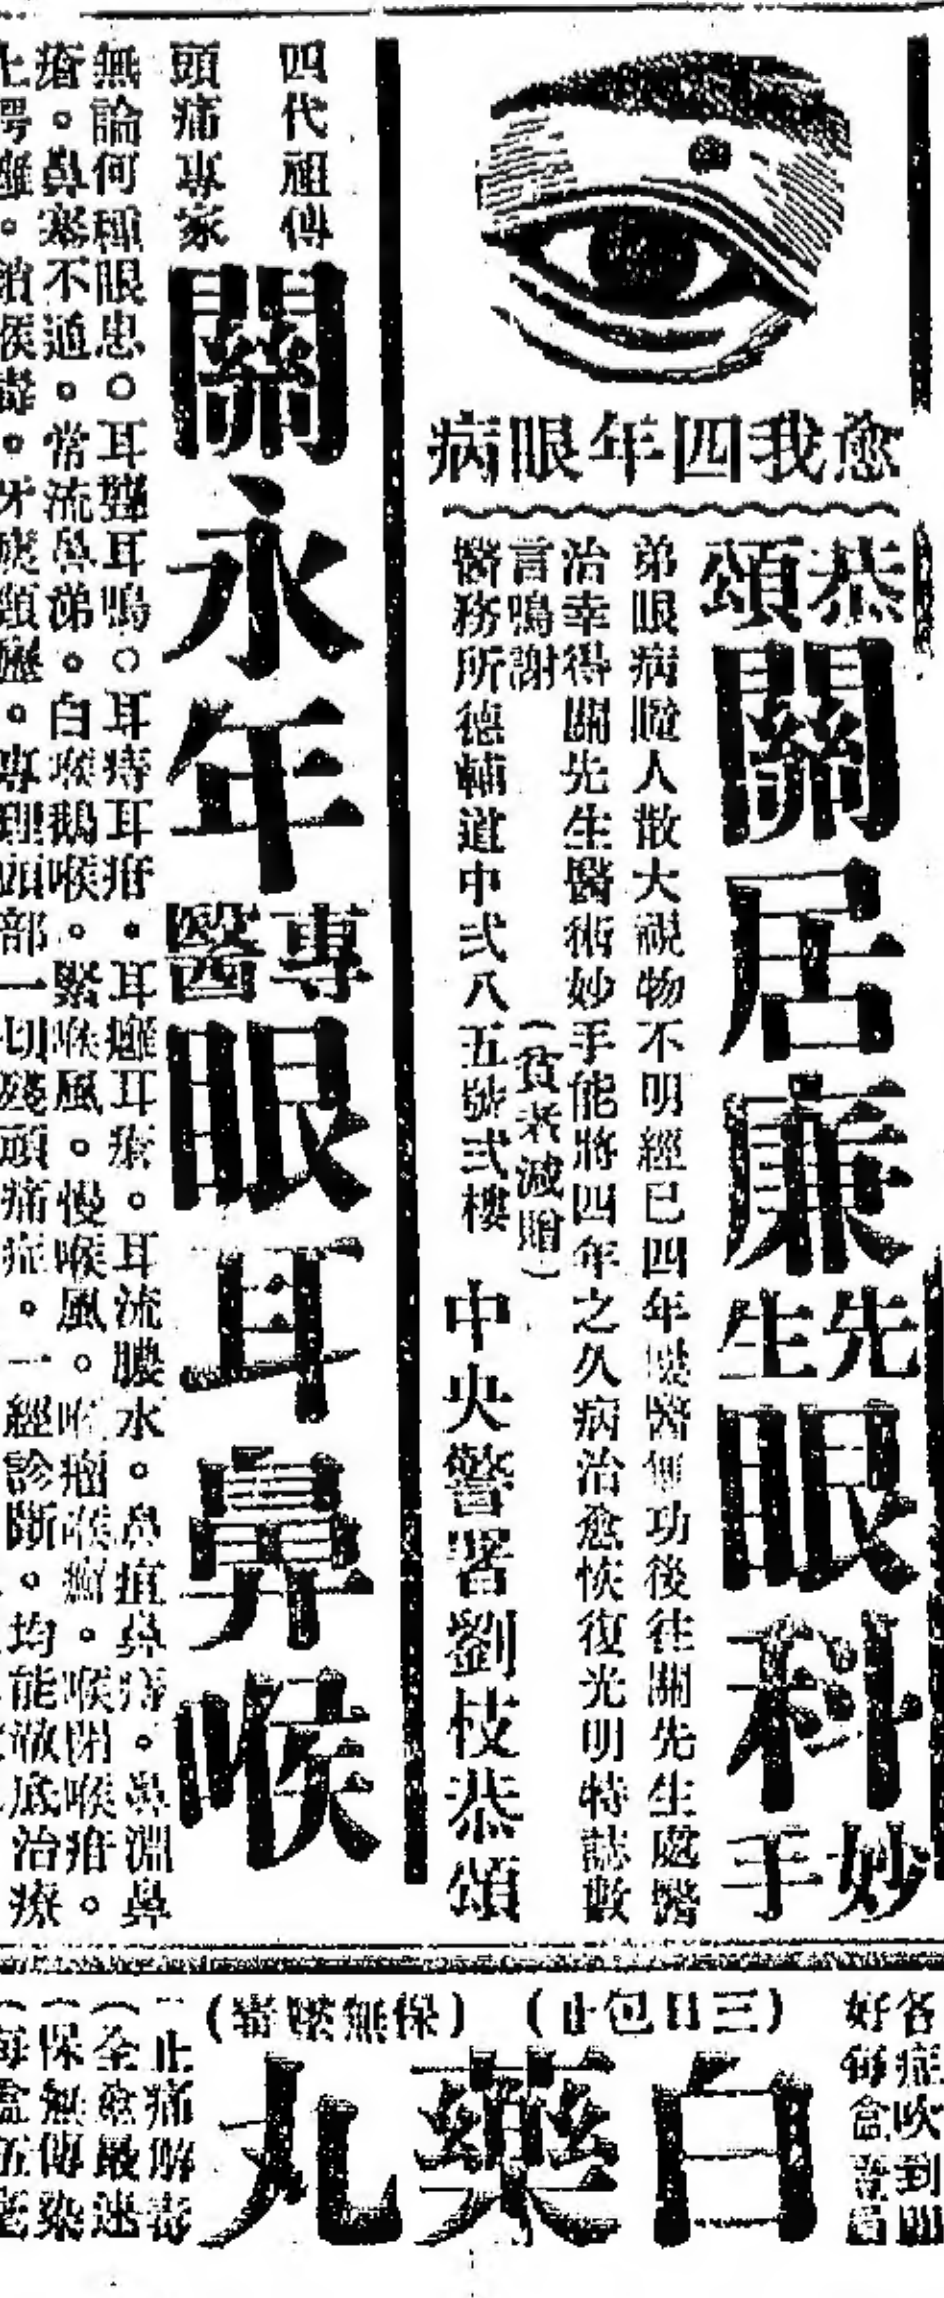 愈我四年眼病
恭頌
關居廉
先生
眼科
妙手
弟眼病瞳人散大視物不明經已四年 醫無功後往關先生處醫
治幸得關先生醫術妙手能將四年之久病治愈恢復光明特誌數
言鳴謝
(貧者減贈)
醫務所德輔道中弍八五號弍樓
中央警署劉枝恭頌
四代祖傳
頭痛專家
關永年
專醫
眼耳鼻喉
無論何種眼患○耳聾耳鳴○耳痔耳疳・耳 耳 。耳流膿水。鼻疽鼻痔。鼻淵鼻
瘡。鼻塞不通。常流鼻涕。白喉鵝喉。緊喉風。慢喉風。 瘤喉 。喉閉喉疳。
。鎖喉 。牙 。專理頭部一切殘頭痛症。一經診斷。均能澈底治療
各症吹到
好每盒
(三日包止)
(保無 )
白藥丸
止痛解毒
(全 最迷
(保無傳染
(每盒五毫